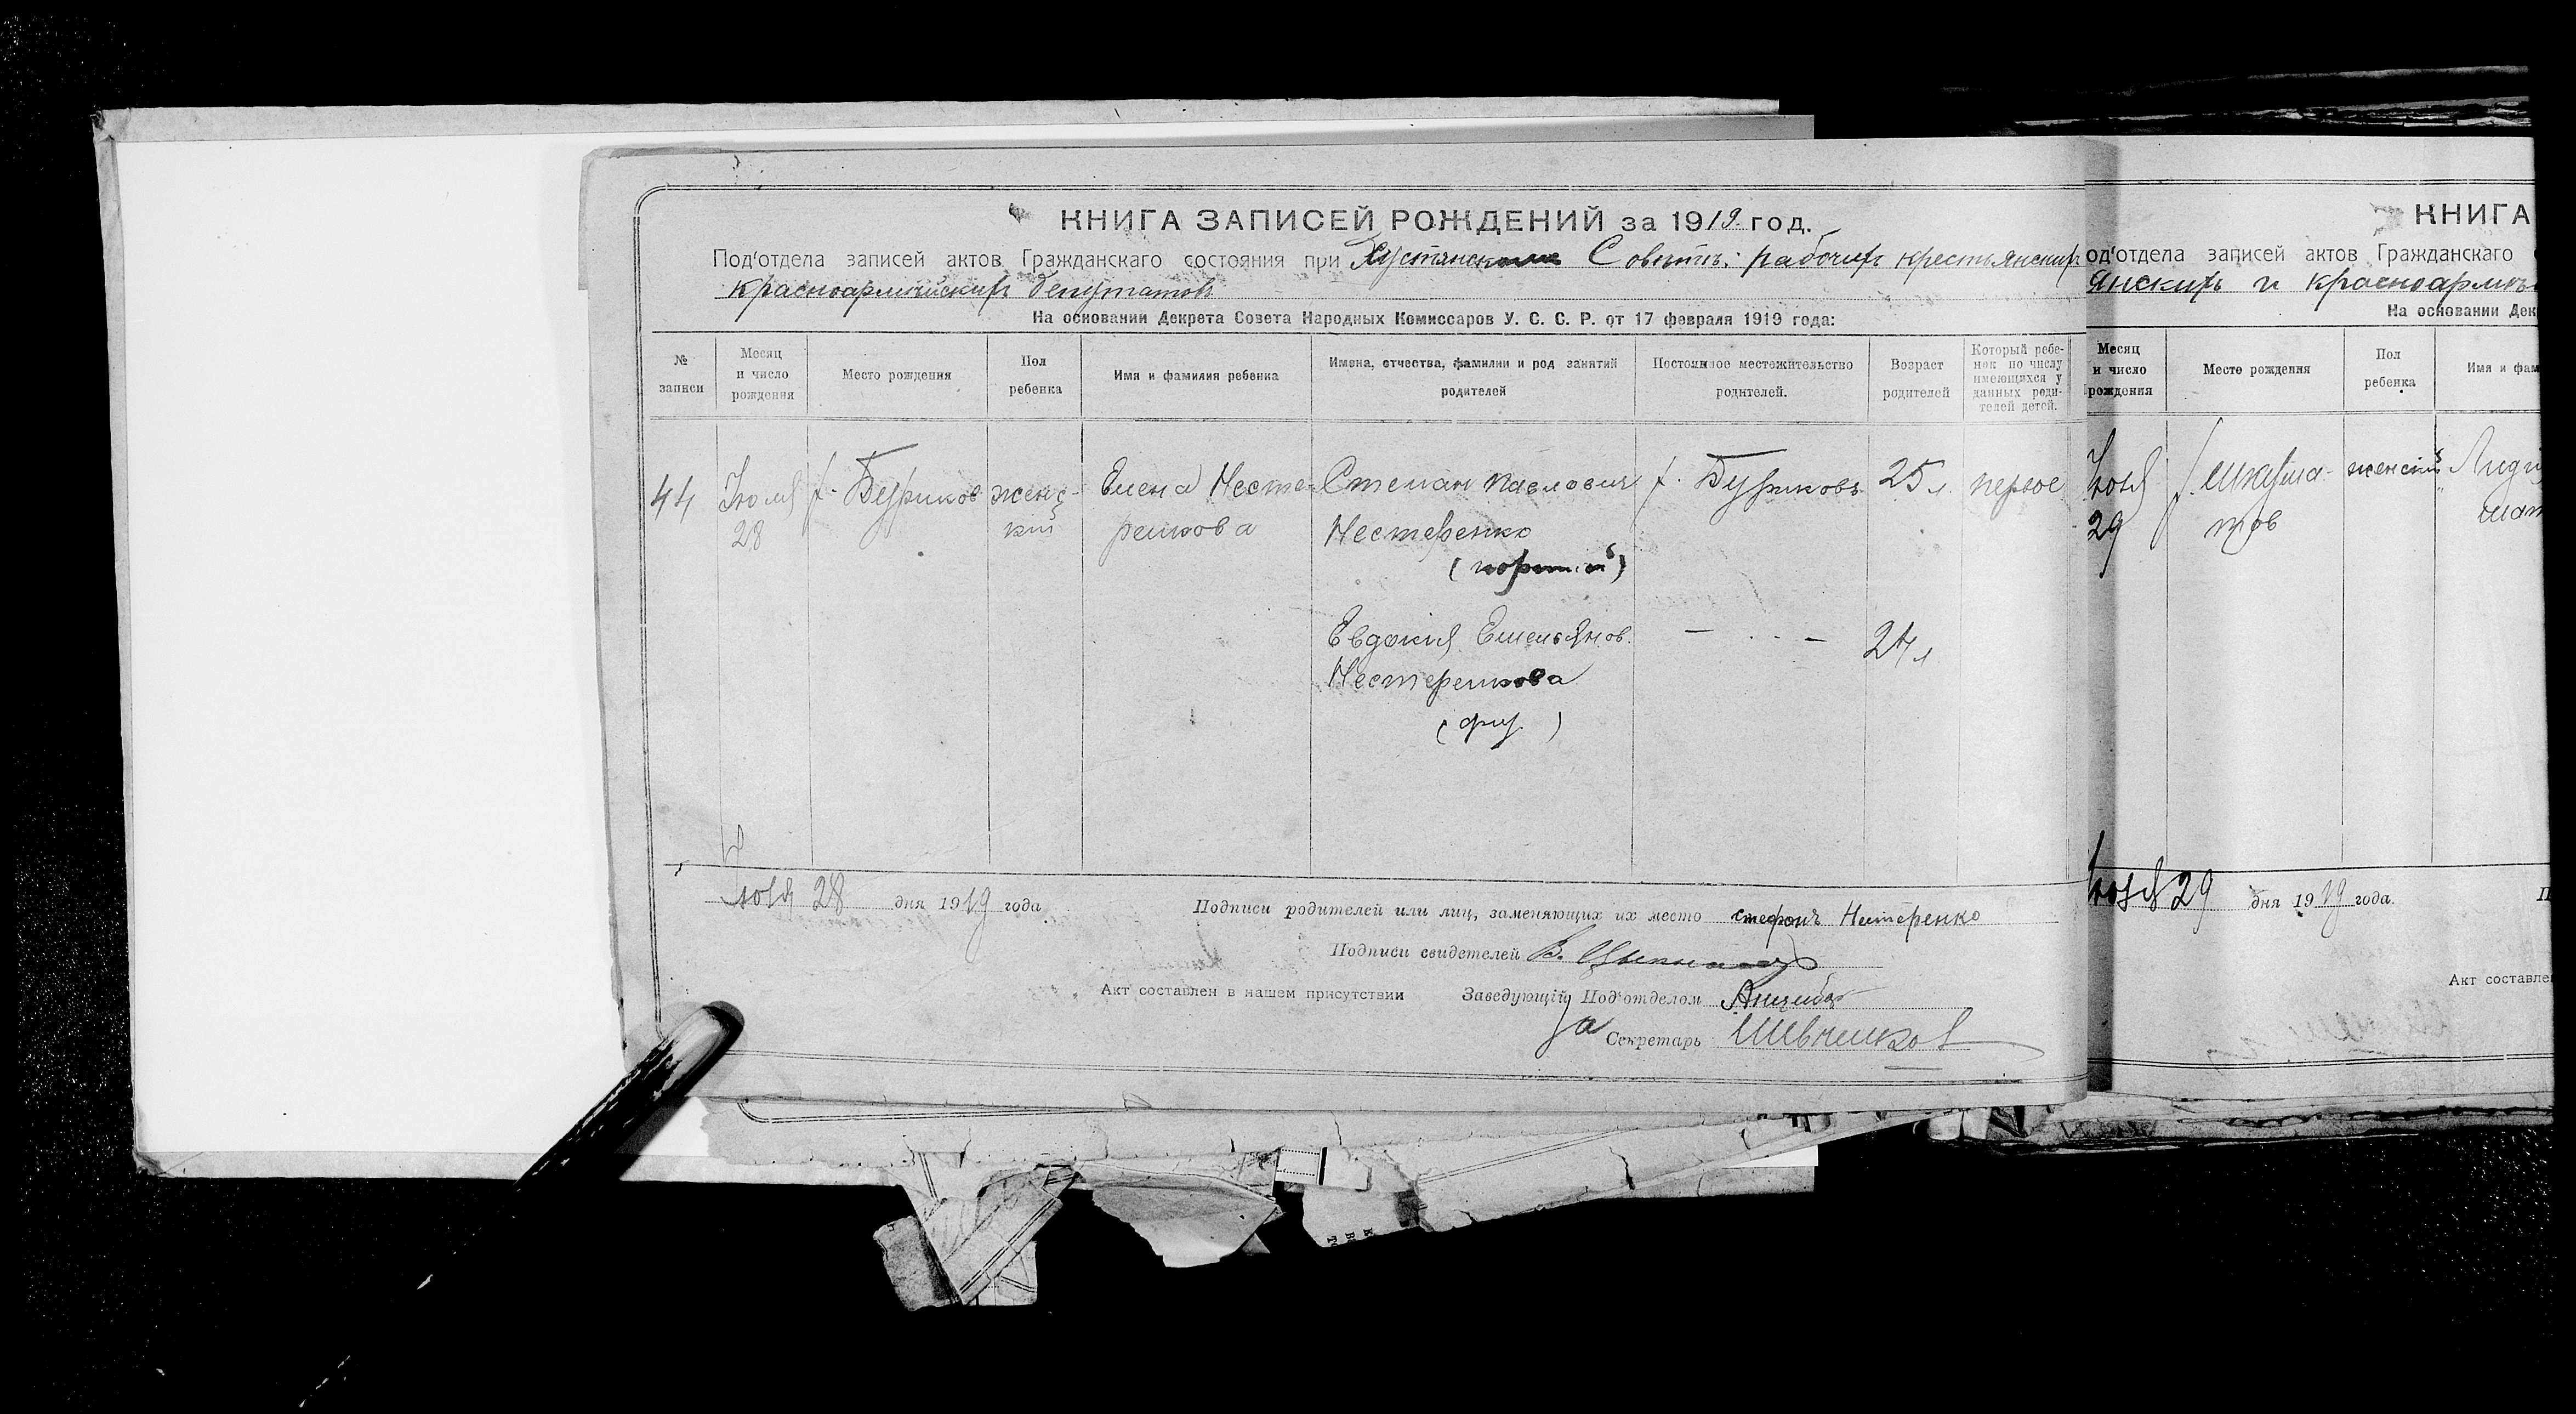 КНИГА ЗАПИСЕЙ РОЖДЕНИЙ за 1919 год.
Под'отдела записей актов Гражданскаго состояния при Хустянском Советъ рабочихъ крестьянскихъ
красноармейскихъ депутатовъ
На основании Декрета Совета Народных Комиссаров У. С. С. Р. от 17 февраля 1919 года:
№ записи
Месяц и число рождения
Место рождения
Пол ребенка
Имя и фамилия ребенка
Имена, отчества, фамилии и род занятий родителей
Постоянное местожительство родителей.
Возраст родителей
Который ребенок по числу имеющихся у данных родителей детей.
44
Июля 28
х. Буриков
женский
Елена Нестеренкова
Степан Павлович
Нестеренко
х. Буриковъ
25 л.
первое
Евдокия Емельянов.
Нестеренкова
24 л
Июля 28 дня 1919 года
Подписи родителей или лиц, заменяющих их место стефонъ Нестеренко
Подписи свидетелей В.
Акт составлен в нашем присутствии Заведующий Под'отделом
За Секретарь
КНИГА
од'отдела записей актов Гражданскаго
янскихъ и красноарм
На основании Дек
Месяц и число рождения
Место рождения
Пол ребенка
Имя и фам
Июля 29
женский
29 дня 1919 года.
П
Акт составле